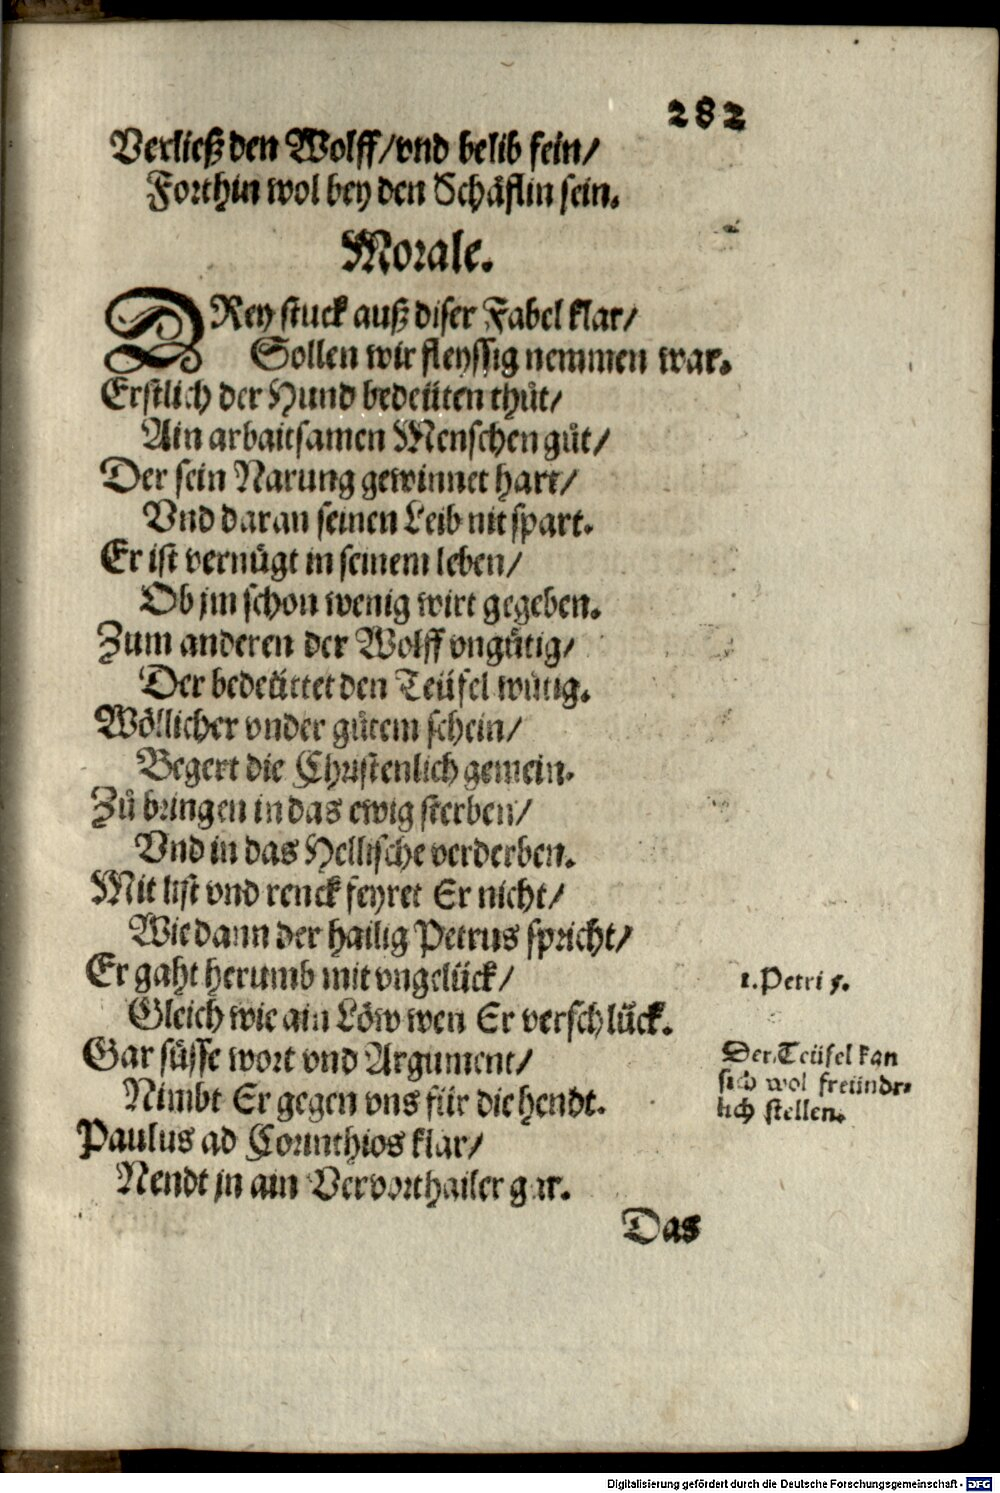 282
Verließ den Wolff/ vnd belib fein/
Forthin wol bey den Schäflin sein.
Morale.
DRey stuck auß diser Fabel klar/
Sollen wir fleyssig nemmen war.
Erstlich der Hund bedeüten thůt/
Ain arbaitsamen Menschen gůt/
Der sein Narung gewinnet hart/
Vnd daran seinen Leib nit spart.
Er ist vernügt in seinem leben/
Ob jm schon wenig wirt gegeben.
Zum anderen der Wolff vngütig/
Der bedeüttet den Teüfel wütig.
Wöllicher vnder gůtem schein/
Begert die Christenlich gemein.
Zů bringen in das ewig sterben/
Vnd in das Hellische verderben.
Mit list vnd renck feyret Er nicht/
Wie dann der hailig Petrus spricht/
Er gaht herumb mit vngelück/
Gleich wie ain Löw wen Er verschlück.
Gar süsse wort vnd Argument/
Nimbt Er gegen vns für die hendt.
Paulus ad Corinthios klar/
Nendt jn ain Vervorthailer gar.
1. Petri 5.
Der Teüfel kan
sich wol freündt-
lich stellen.
Das
Digitalisierung gefördert durch die Deutsche Forschungsgemeinschaft - DFG